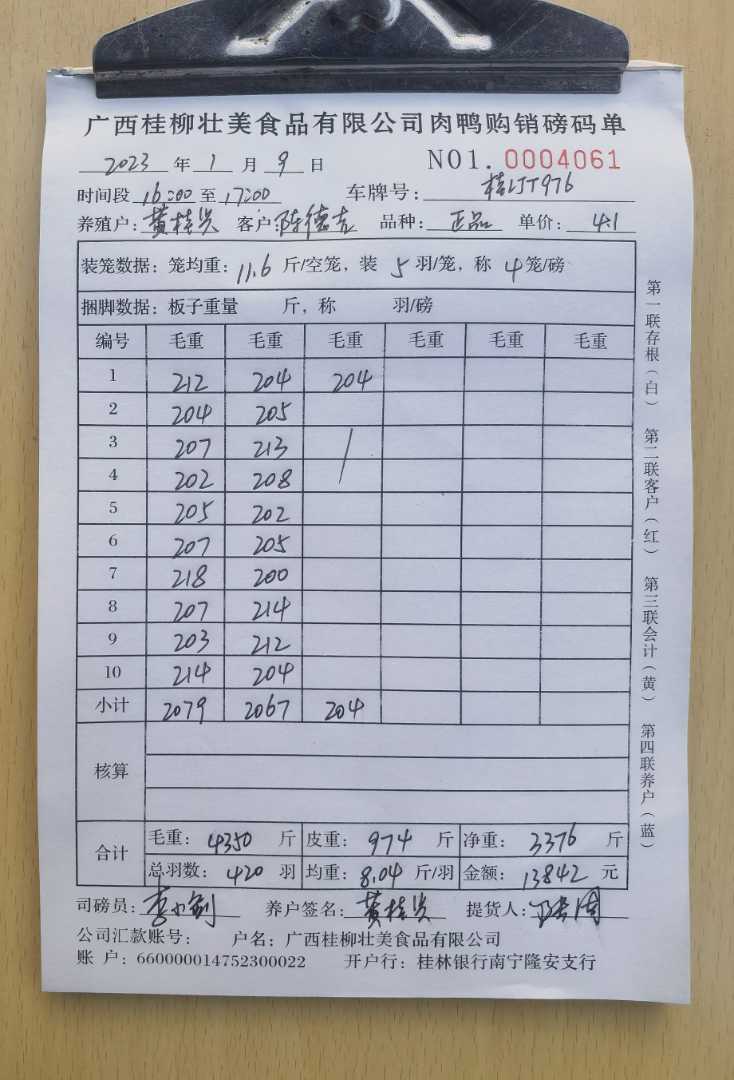 广西桂柳壮美食品有限公司肉鸭购销磅码单
2023 年 1 月 9 日 NO1. 0004061
时间段 16:00 至 17:00 车牌号: 桂LJT976
养殖户: 黄桂贤 客户: 陈德吉 品种: 正品 单价: 4.1
装笼数据: 笼均重: 11.6 斤/空笼, 装 5 羽/笼, 称 4 笼/磅
捆脚数据: 板子重量 斤, 称 羽/磅
编号 毛重 毛重 毛重 毛重 毛重 毛重
1 212 204 204
2 204 205
3 207 213
4 202 208
5 205 202
6 207 205
7 218 200
8 207 214
9 203 212
10 214 204
小计 2079 2067 204
核算
合计 毛重: 4350 斤 皮重: 974 斤 净重: 3376 斤
总羽数: 420 羽 均重: 8.04 斤/羽 金额: 13842 元
司磅员: 李小剑 养户签名: 黄桂贤 提货人:
公司汇款账号: 户名: 广西桂柳壮美食品有限公司
账 户: 660000014752300022 开户行: 桂林银行南宁隆安支行
第一联存根(白) 第二联客户(红) 第三联会计(黄) 第四联养户(蓝)